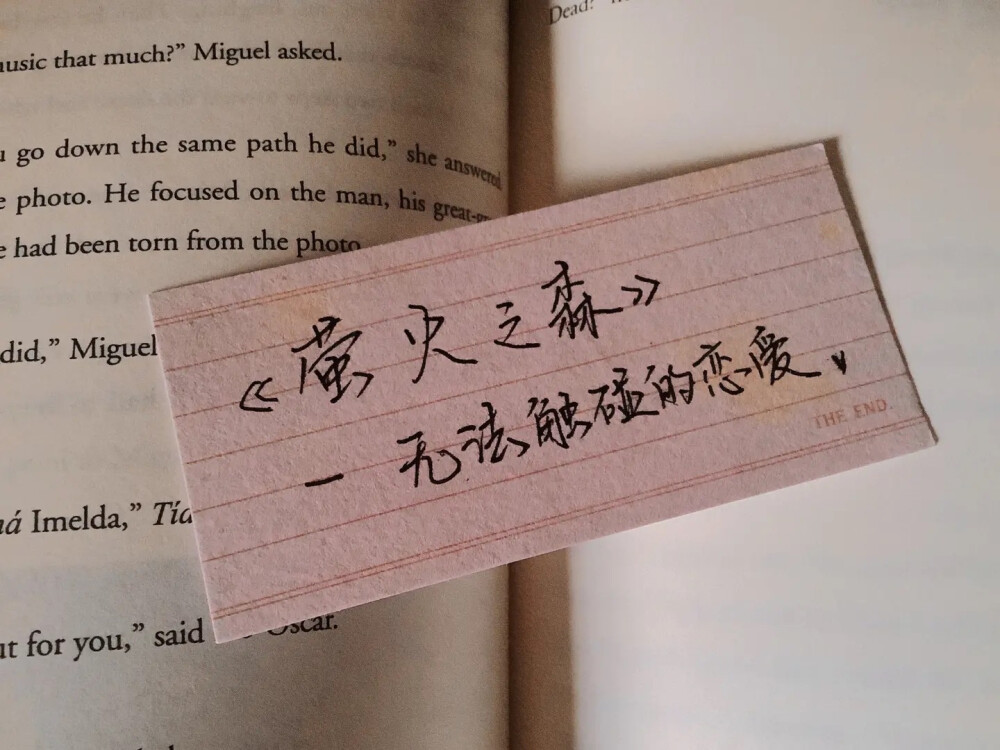 Dead?
music that much?” Miguel asked.
go down the same path he did,” she answered
photo. He focused on the man, his great-
had been torn from the photo
did,” Miguel
《萤火之森》
— 无法触碰的恋爱.
THE END.
Imelda,” Tía
for you,” said
Oscar.